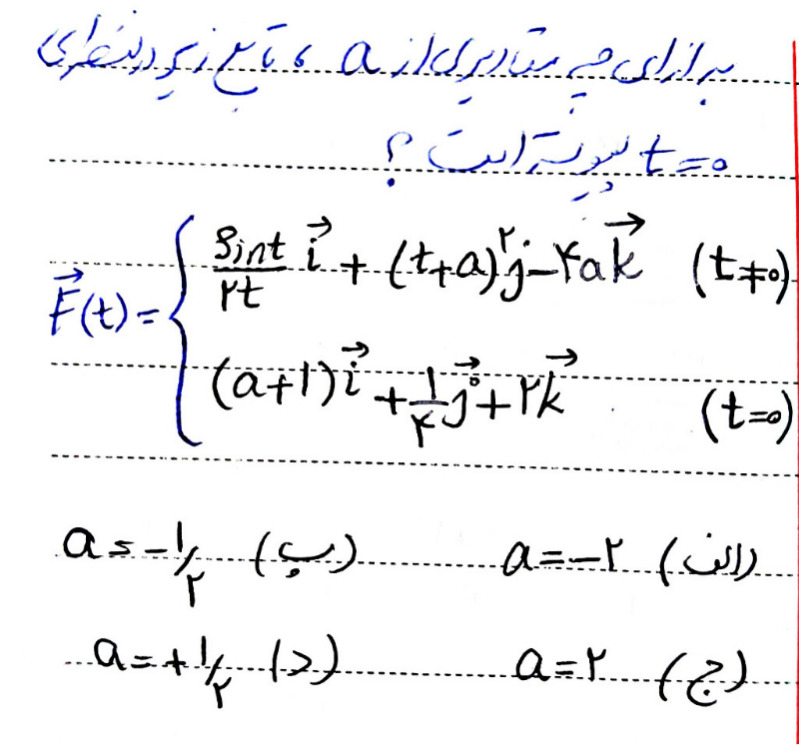 به ازای چه مقادیری از a ، تابع زیر در نقطه‌ی
t=۰ پیوسته است ؟
F(t) = { sint/۲t i + (t+a)^۲ j - ۴ak (t≠۰)
(a+۱)i + ۱/۴ j + ۲k (t=۰)
الف) a=-۲ ب) a=-۱/۲
ج) a=۲ د) a=+۱/۲